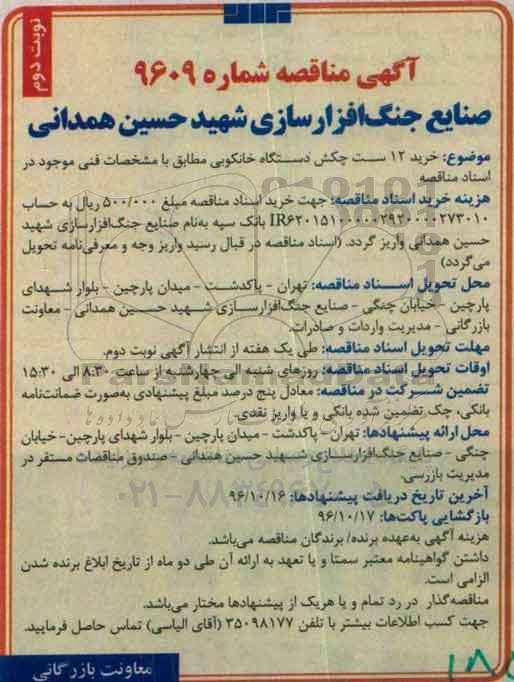 نوبت دوم
آگهی مناقصه شماره ۹۶۰۹
صنایع جنگ‌افزارسازی شهید حسین همدانی
موضوع: خرید ۱۲ ست چکش دستگاه خانکوبی مطابق با مشخصات فنی موجود در
اسناد مناقصه
هزینه خرید اسناد مناقصه: جهت خرید اسناد مناقصه مبلغ ۵۰۰/۰۰۰ ریال به حساب
بانک سپه به‌نام صنایع جنگ‌افزارسازی شهید
حسین همدانی واریز گردد. (اسناد مناقصه در قبال رسید واریز وجه و معرفی‌نامه تحویل
می‌گردد)
محل تحویل اسناد مناقصه: تهران - پاکدشت - میدان پارچین - بلوار شهدای
پارچین - خیابان چنگی - صنایع جنگ‌افزارسازی شهید حسین همدانی - معاونت
بازرگانی - مدیریت واردات و صادرات.
مهلت تحویل اسناد مناقصه: طی یک هفته از انتشار آگهی نوبت دوم.
اوقات تحویل اسناد مناقصه: روزهای شنبه الی چهارشنبه از ساعت ۸:۳۰ الی ۱۵:۳۰
تضمین شرکت در مناقصه: معادل پنج درصد مبلغ پیشنهادی به‌صورت ضمانت‌نامه
بانکی، چک تضمین شده بانکی و یا واریز نقدی.
محل ارائه پیشنهادها: تهران - پاکدشت - میدان پارچین - بلوار شهدای پارچین - خیابان
چنگی - صنایع جنگ‌افزارسازی شهید حسین همدانی - صندوق مناقصات مستقر در
مدیریت بازرسی.
آخرین تاریخ دریافت پیشنهادها: ۹۶/۱۰/۱۶
بازگشایی پاکت‌ها: ۹۶/۱۰/۱۷
هزینه آگهی به‌عهده برنده/ برندگان مناقصه می‌باشد.
داشتن گواهینامه معتبر سمتا و یا تعهد به ارائه آن طی دو ماه از تاریخ ابلاغ برنده شدن
الزامی است.
مناقصه‌گذار در رد تمام و یا هریک از پیشنهادها مختار می‌باشد.
جهت کسب اطلاعات بیشتر با تلفن ۳۵۰۹۸۱۷۷ (آقای الیاسی) تماس حاصل فرمایید.
معاونت بازرگانی
۰۲۱-۸۸۳۴۹۶۷۰